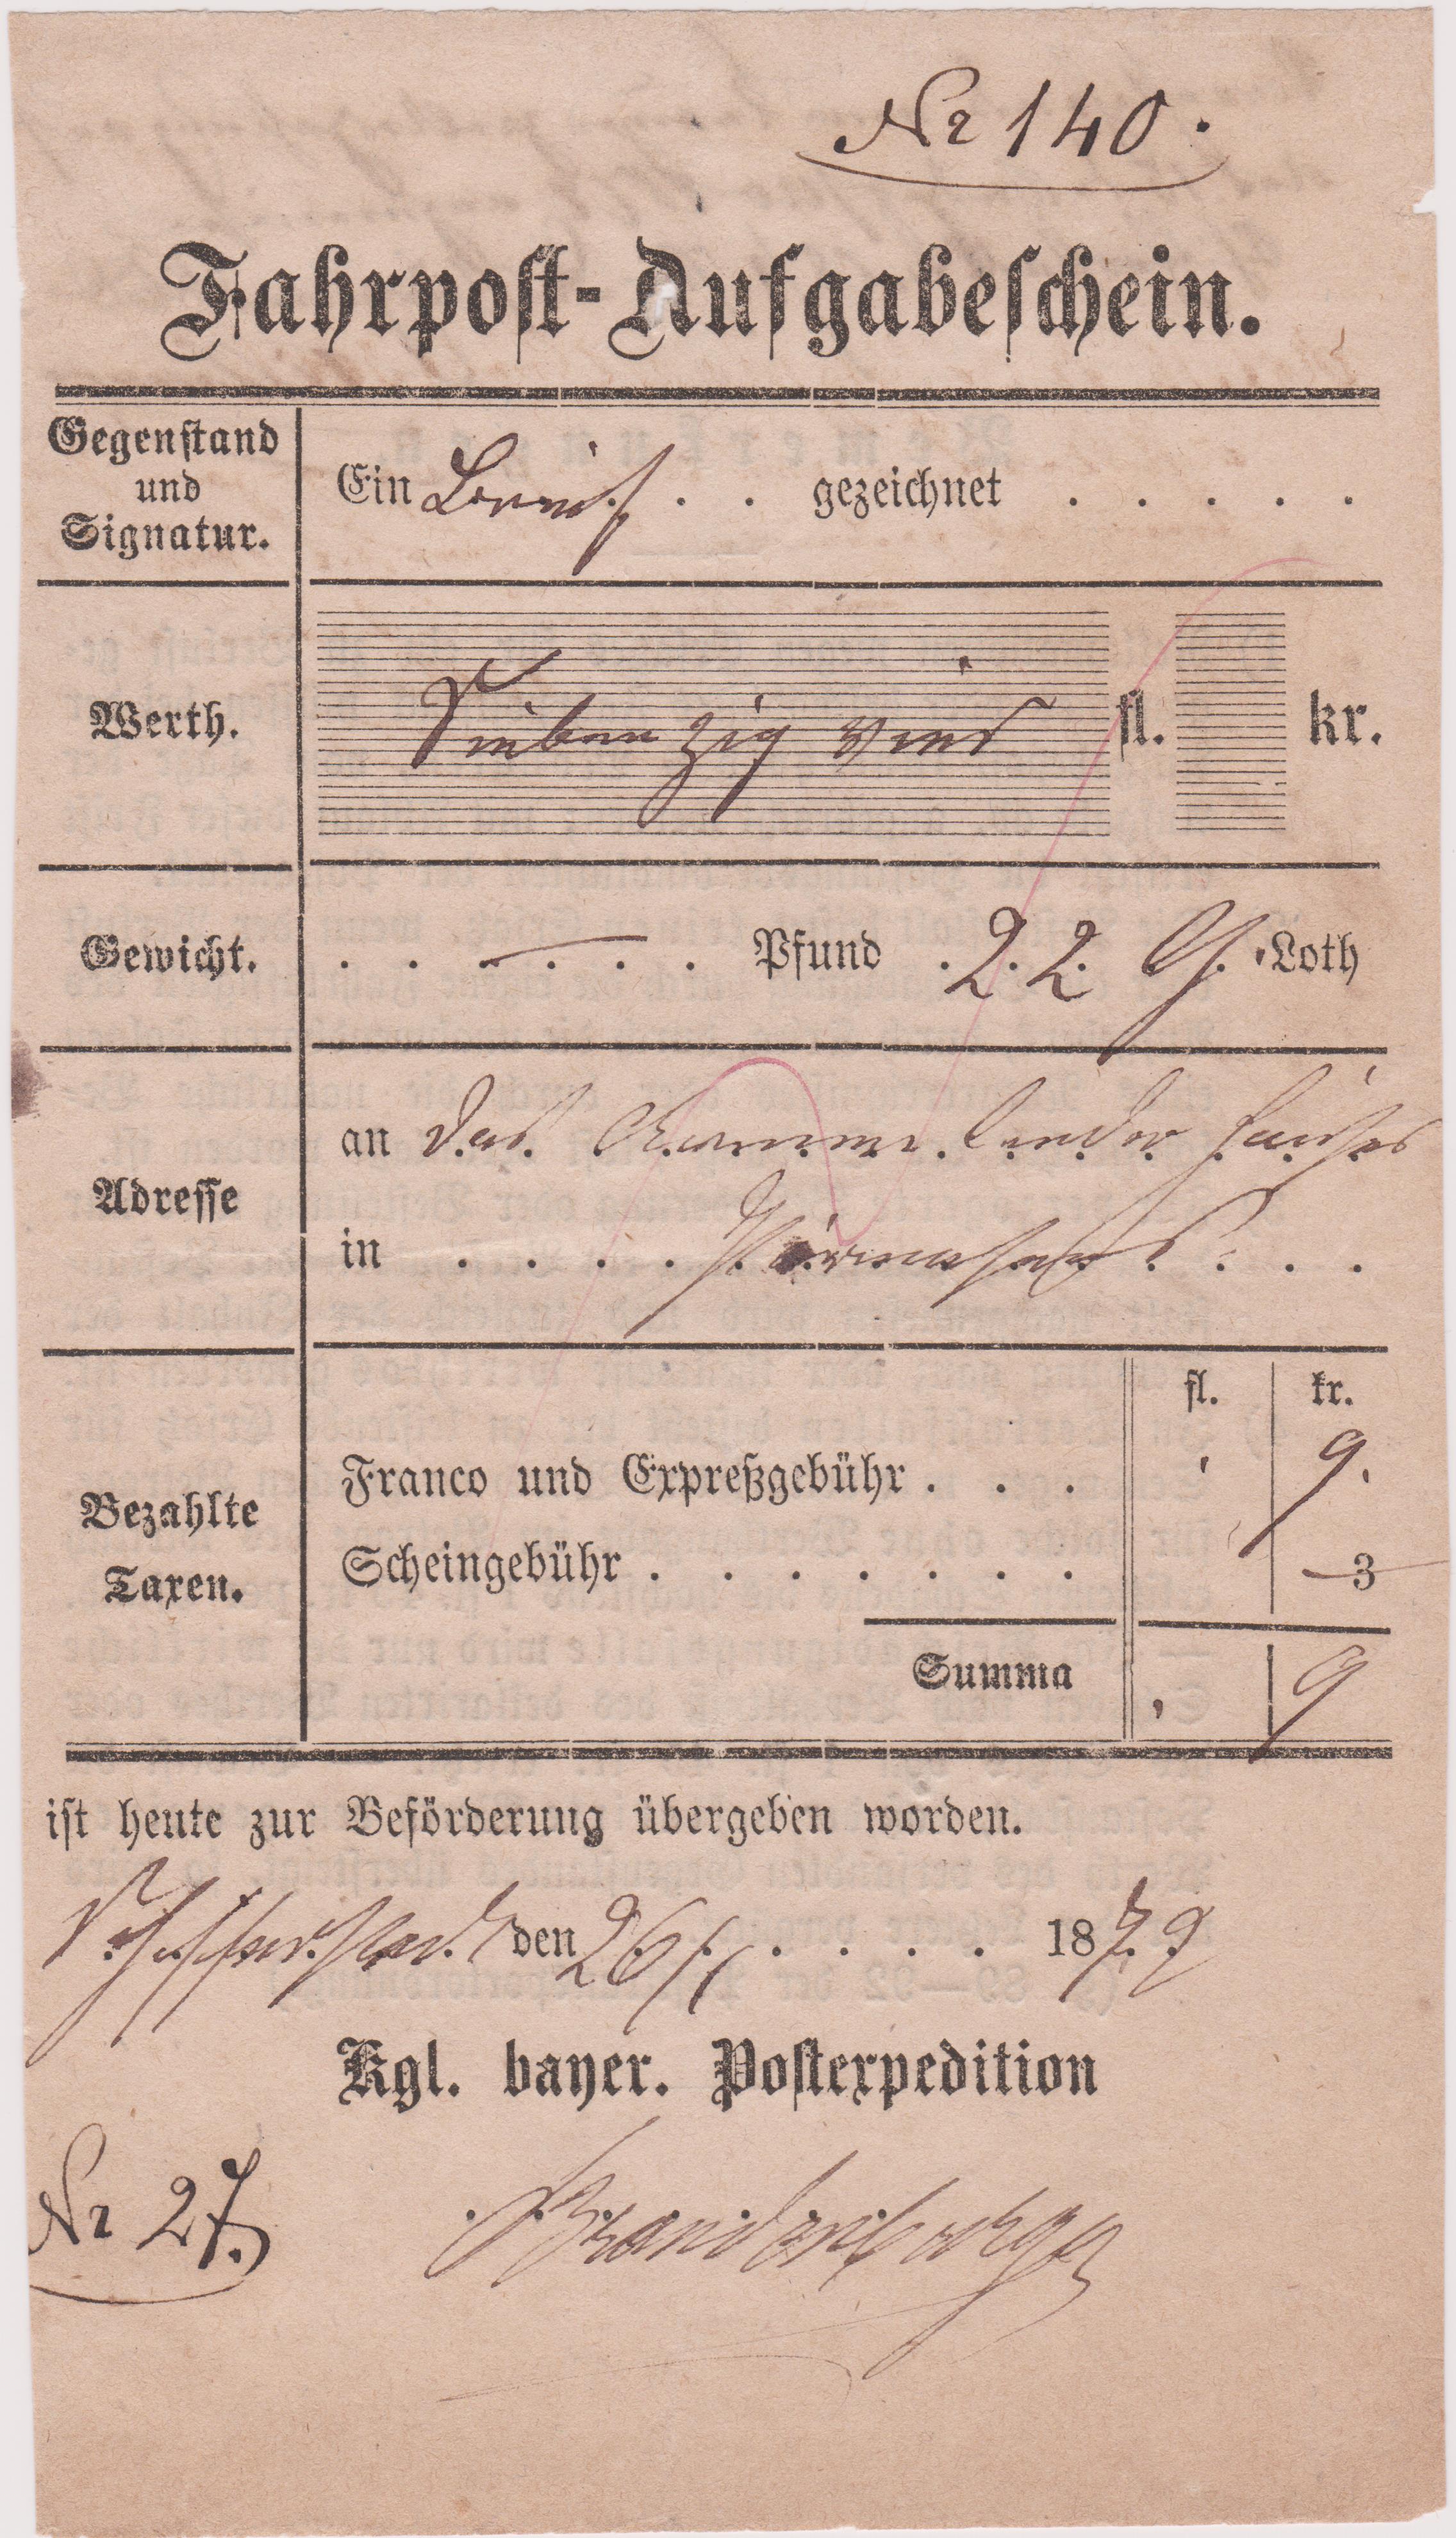 Nr 140.
Fahrpost-Aufgabeschein.
Gegenstand
und
Signatur.
Ein Brief . . gezeichnet . . . . .
Werth.
Siebenzig vier fl. kr.
Gewicht.
. . . . . . Pfund 22 G. Loth
Adresse
an das
in . . . . Pirmasens . . . .
fl. kr.
Bezahlte
Taxen.
Franco und Expreßgebühr . . . 9.
Scheingebühr . . . . . . . 3
Summa 9
ist heute zur Befördernng übergeben worden.
den 26/ . . . . 1872
Kgl. bayer. Postexpedition
Nr 27.